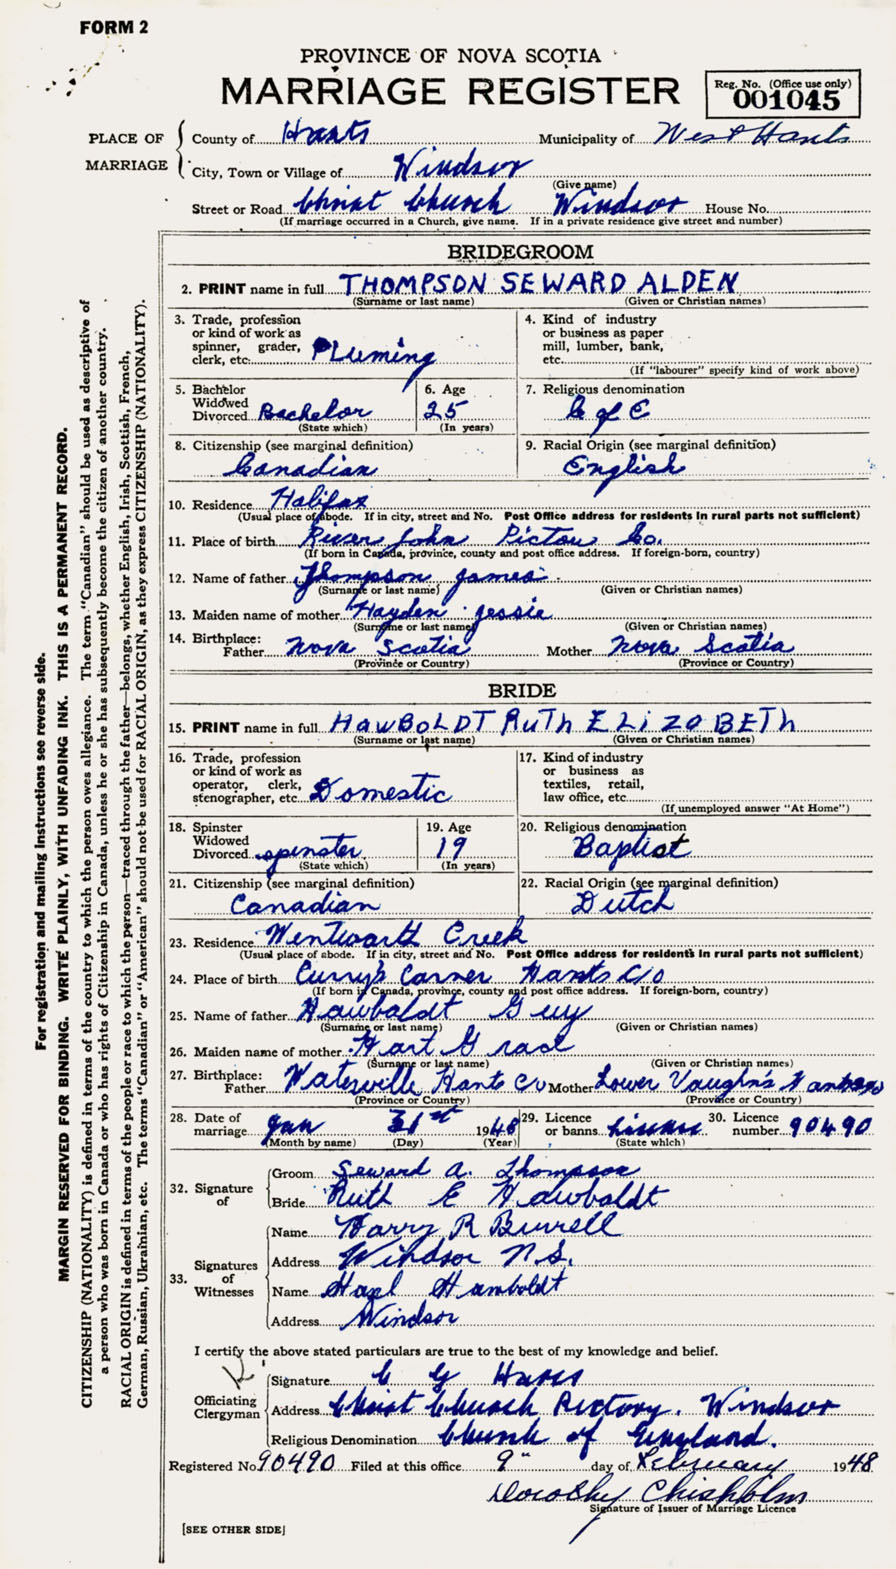 FORM 2
PROVINCE OF NOVA SCOTIA
MARRIAGE REGISTER
Reg. No. (Office use only)
001045
PLACE OF MARRIAGE
County of Hants Municipality of West Hants
City, Town or Village of Windsor
(Give name)
Street or Road Christ Church Windsor House No.
(If marriage occurred in a Church, give name. If in a private residence give street and number)
BRIDEGROOM
2. PRINT name in full THOMPSON SEWARD ALDEN
(Surname or last name) (Given or Christian names)
3. Trade, profession
or kind of work as
spinner, grader,
clerk, etc. PLuming
4. Kind of industry
or business as paper
mill, lumber, bank,
etc.
(If "labourer" specify kind of work above)
5. Bachelor
Widowed
Divorced Bachelor
(State which)
6. Age
25
(In years)
7. Religious denomination
C of E
8. Citizenship (see marginal definition)
Canadian
9. Racial Origin (see marginal definition)
English
10. Residence Halifax
(Usual place of abode. If in city, street and No. Post Office address for residents in rural parts not sufficient)
11. Place of birth River John Pictou Co.
(If born in Canada, province, county and post office address. If foreign-born, country)
12. Name of father Thompson James
(Surname or last name) (Given or Christian names)
13. Maiden name of mother Hayden Jessie
(Surname or last name) (Given or Christian names)
14. Birthplace:
Father Nova Scotia Mother Nova Scotia
(Province or Country) (Province or Country)
BRIDE
15. PRINT name in full HAWBOLDT RUTH ELIZABETH
(Surname or last name) (Given or Christian names)
16. Trade, profession
or kind of work as
operator, clerk,
stenographer, etc. Domestic
17. Kind of industry
or business as
textiles, retail,
law office, etc.
(If unemployed answer "At Home")
18. Spinster
Widowed
Divorced spinster
(State which)
19. Age
19
(In years)
20. Religious denomination
Baptist
21. Citizenship (see marginal definition)
Canadian
22. Racial Origin (see marginal definition)
Dutch
23. Residence Wentworth Creek
(Usual place of abode. If in city, street and No. Post Office address for residents in rural parts not sufficient)
24. Place of birth Curry's Corner Hants C/o
(If born in Canada, province, county and post office address. If foreign-born, country)
25. Name of father Hawboldt Guy
(Surname or last name) (Given or Christian names)
26. Maiden name of mother Hart Grace
(Surname or last name) (Given or Christian names)
27. Birthplace:
Father Waterville Hants Co Mother Lower Vaughns
(Province or Country) (Province or Country)
28. Date of
marriage Jan 31st 1948
(Month by name) (Day) (Year)
29. Licence
or banns License
(State which)
30. Licence
number 90490
32. Signature of
Groom Seward A. Thompson
Bride Ruth E Hawboldt
33. Signatures of Witnesses
Name Harry R Burrell
Address Windsor N.S.
Name Hazel Hawboldt
Address Windsor
I certify the above stated particulars are true to the best of my knowledge and belief.
Officiating Clergyman
Signature C G
Address Christ Church Rectory. Windsor
Religious Denomination Church of England.
Registered No. 90490 Filed at this office 9" day of February 1948
Dorothy Chisholm
Signature of Issuer of Marriage Licence
[SEE OTHER SIDE]
For registration and mailing instructions see reverse side.
MARGIN RESERVED FOR BINDING. WRITE PLAINLY, WITH UNFADING INK. THIS IS A PERMANENT RECORD.
CITIZENSHIP (NATIONALITY) is defined in terms of the country to which the person owes allegiance. The term "Canadian" should be used as descriptive of
a person who was born in Canada or who has rights of Citizenship in Canada, unless he or she has subsequently become the citizen of another country.
RACIAL ORIGIN is defined in terms of the people or race to which the person—traced through the father—belongs, whether English, Irish, Scottish, French,
German, Russian, Ukrainian, etc. The terms "Canadian" or "American" should not be used for RACIAL ORIGIN, as they express CITIZENSHIP (NATIONALITY).